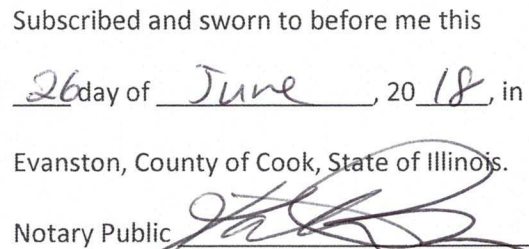 Subscribed and sworn to before me this
26 day of June, 20 18, in
Evanston, County of Cook, State of Illinois.
Notary Public